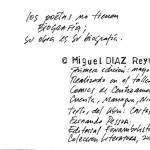 los poetas no tienen
BIOGRAFÍA;
Su obra es su biografía.
© Miguel DIAZ Rey
primera edición: mayo
Realizado en el taller
Camino de Centroamér
Cuenta, Managua, Ni
texto del libro: Carlos
Fernando Pessoa.
Editorial Fonambulista
Colección Literatura, 20